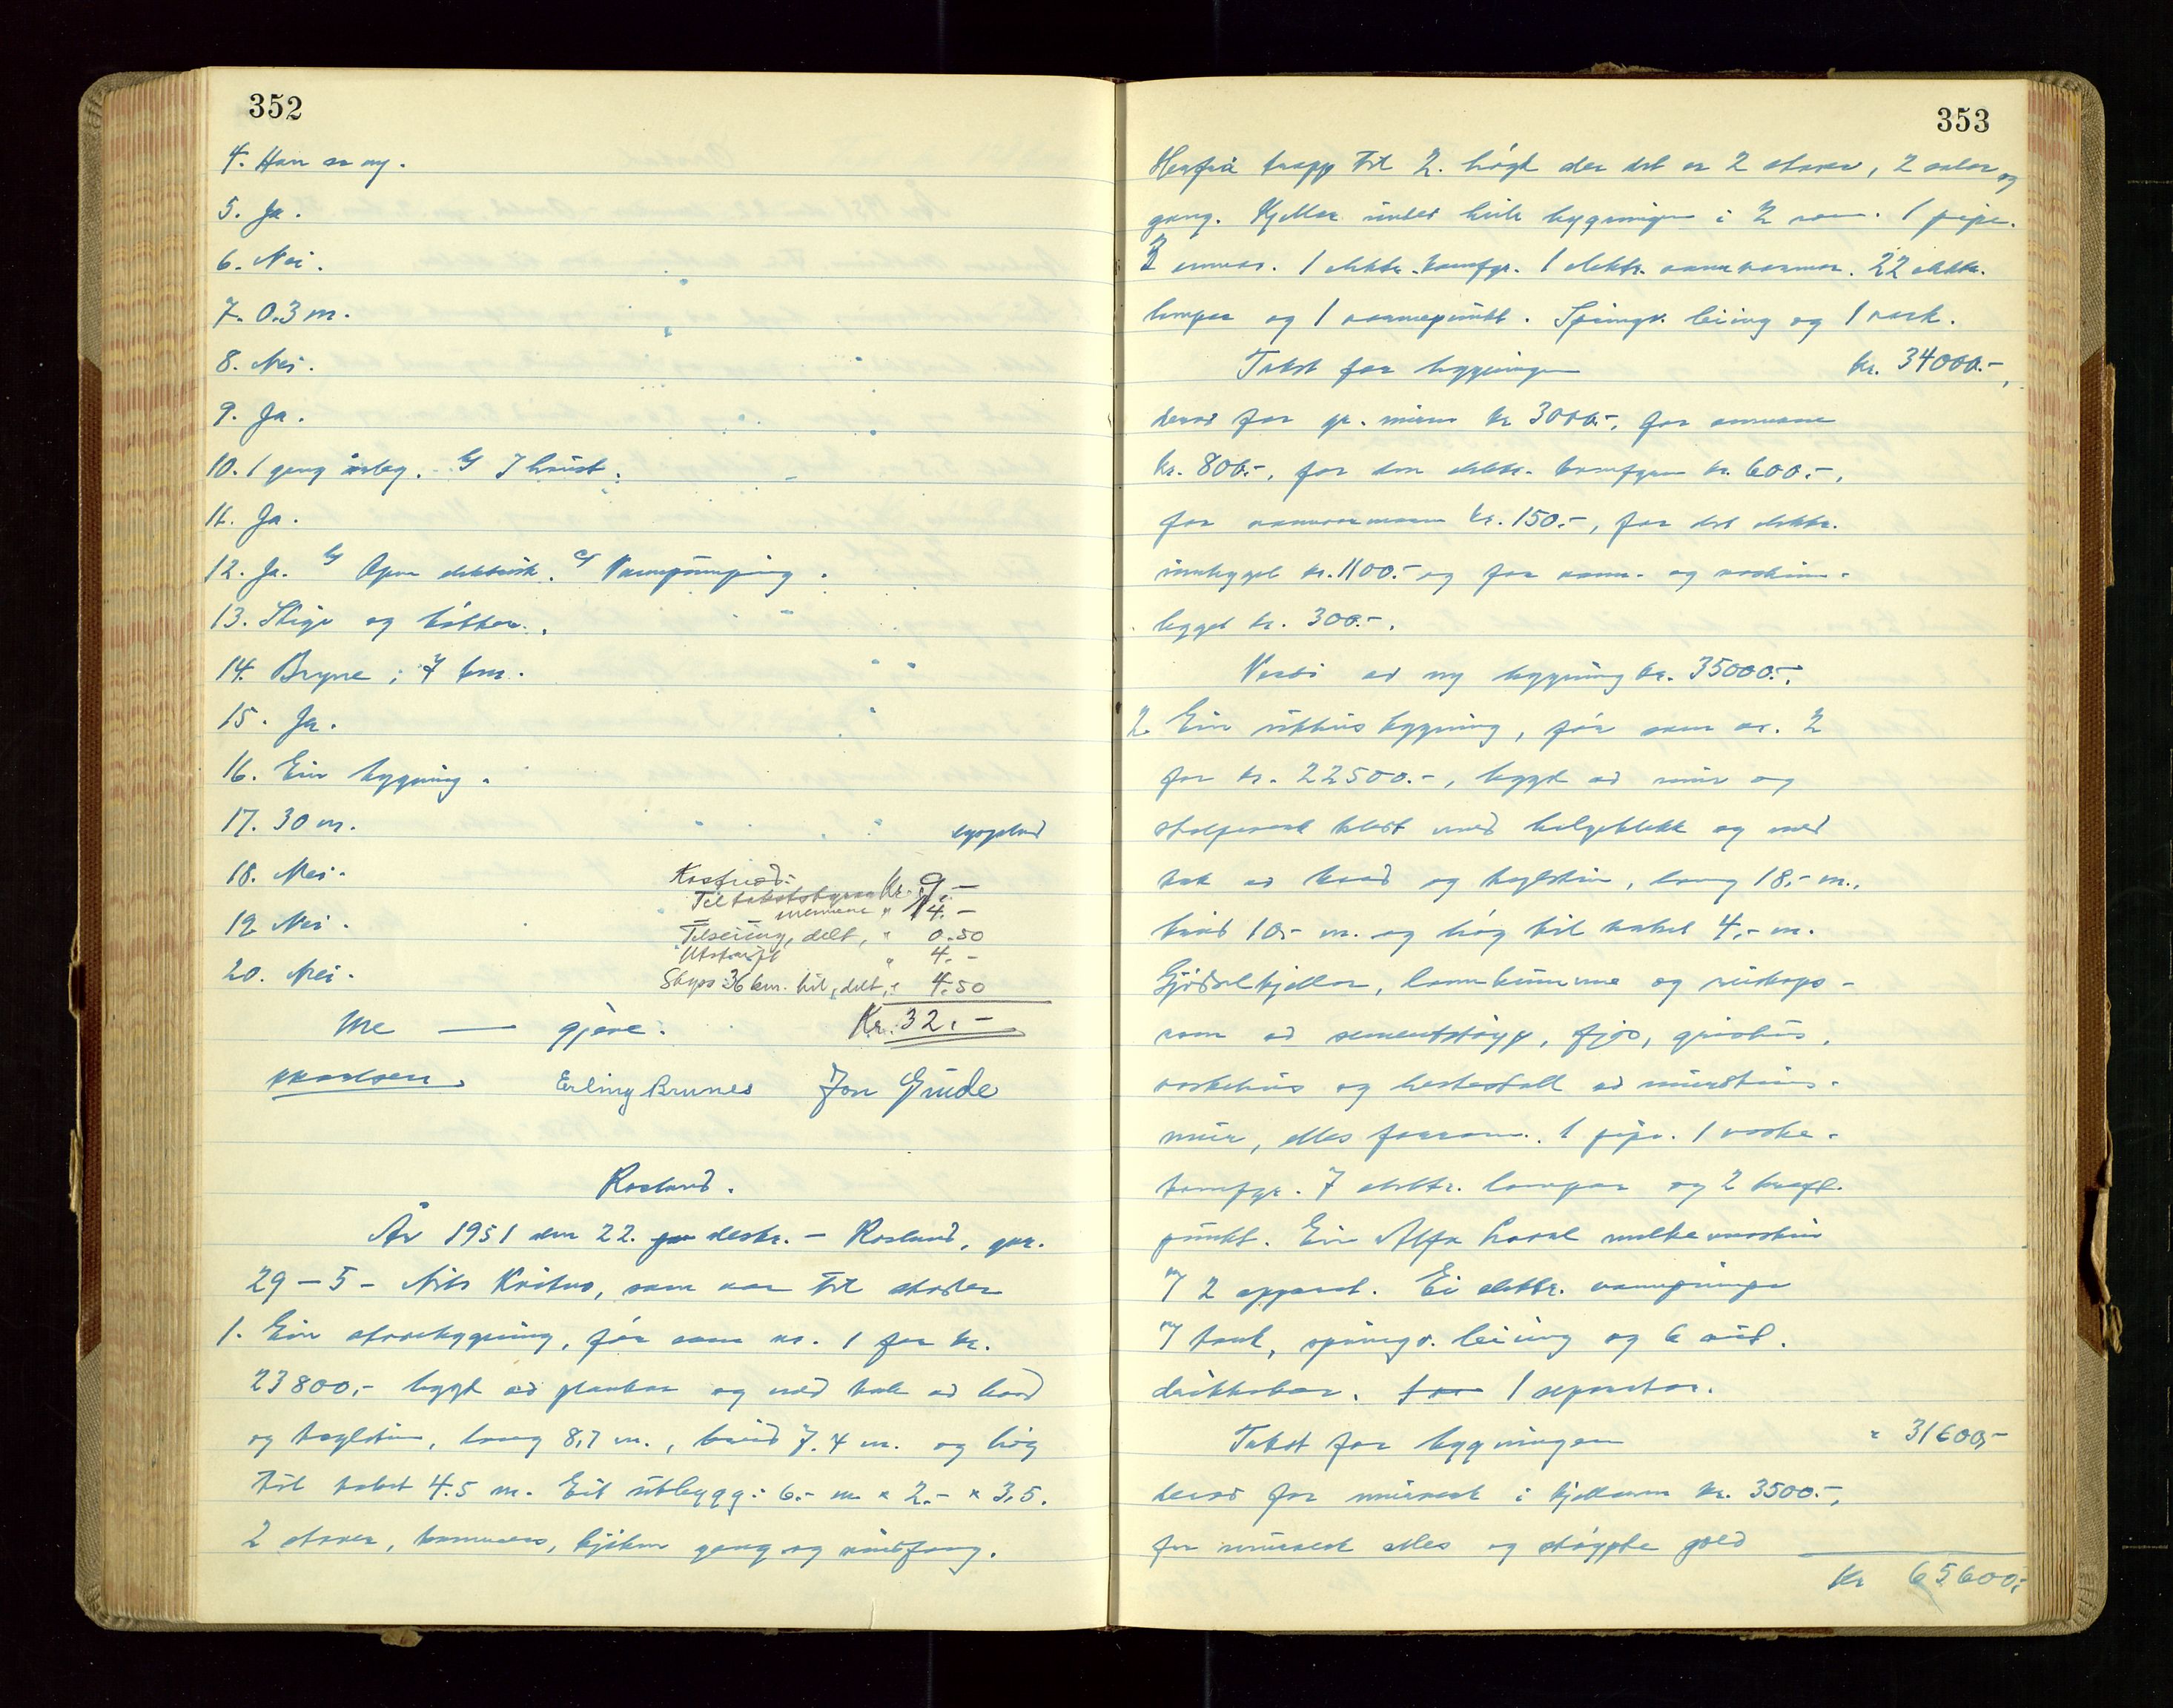 352
4. Han er ny.
5. Ja.
6. Nei.
7. 0.3 m.
8. Nei.
9. Ja.
10. 1 gong årleg. b/ I haust.
11. Ja.
12. Ja. b/ Open elektrisk. c/ Vasspumping.
13. Stige og bøtter.
14. Bryne; 7 km.
15. Ja.
16. Ein bygning.
17. 30 m.
18. Nei.
19. Nei.
20. Nei.
oppgjord
Kostnad:
Til takstskyraren Kr. 9.-
— mennene " 14.-
Telseiing, delt, " 0.50
Utskrift " 4.-
Skyss 36 km. bil, delt, " 4.50
Kr. 32.-
Me — gjeve.
Erling Brunes Jon Gude
Rosland.
År 1951 den 22. desbr. - Rosland, gnr.
29-5- Nils Kvitno, som var til stades
1. Ein stovebygning, før som nr. 1 for kr.
23800,- bygd av plankar og med tak av bord
og taglstein, lang 8,7 m., breid 7.4 m. og høg
til taket 4.5 m. Eit utbygg: 6.- m x 2.- x 3,5.
2 stover, kammers, kjøken gang og vindfang.
353
Herfrå trapp til 2. høgd der det er 2 stover, 2 soler og
gang. Kjellar under heile bygningen i 2 rom. 1 pipe.
3 omnar. 1 elektr. komfyr. 1 elektr. vannvarmar. 22 elektr.
lamper og 1 varmepunkt. Springv. leiing og 1 vask.
Takst for bygningen kr. 34000.-,
derav for gr. muren kr 3000.-, for omnane
kr. 800.-, for den elektr. komfyren kr. 600.-,
for vannvarmaren kr. 150.-, for det elektr.
innlegget kr. 1100.- og for vann- og vaskinn-
legget kr. 300.-.
Verdi av ny bygning kr. 35000.-.
2. Ein uthusbygning, før som nr. 2
for kr. 22500.-, bygd av mur og
stolpeverk kledt med bølgeblekk og med
tak av bord og taglstein, lang 18,- m.,
breid 10,- m. og høg til taket 4,- m.
Gjødselkjellar, landkumme og reiskaps-
rom av sementstøyp, fjos, grishus,
vaskehus og hestestall av murstein-
mur, elles forrom. 1 pipe. 1 vaske-
komfyr. 7 elektr. lamper og 2 kraft-
punkt. Ein Alfa Laval melkemaskin
m/ 2 apparat. Ei elektr. vannpumpe
m/ tank, springv. leiing og 6 aut.
drikkekar. 1 separator.
Takst for bygningen " 31600,-
derav for murverk i kjellaren kr. 3500.-,
for murverk elles og støypte golv
Kr 65600.-